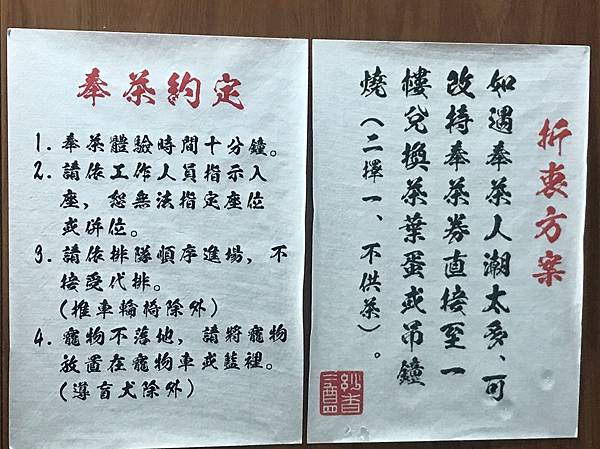 奉茶約定
1. 奉茶體驗時間十分鐘。
2. 請依工作人員指示入
座，恕無法指定座位
或併位。
3. 請依排隊順序進場，不
接受代排。
(推車輪椅除外)
4. 寵物不落地，請將寵物
放置在寵物車或籃裡。
(導盲犬除外)
折衷方案
如遇奉茶人潮太多、可
改持奉茶券直接至一
樓兌換茶葉蛋或吊鐘
燒（二擇一、不供茶）。